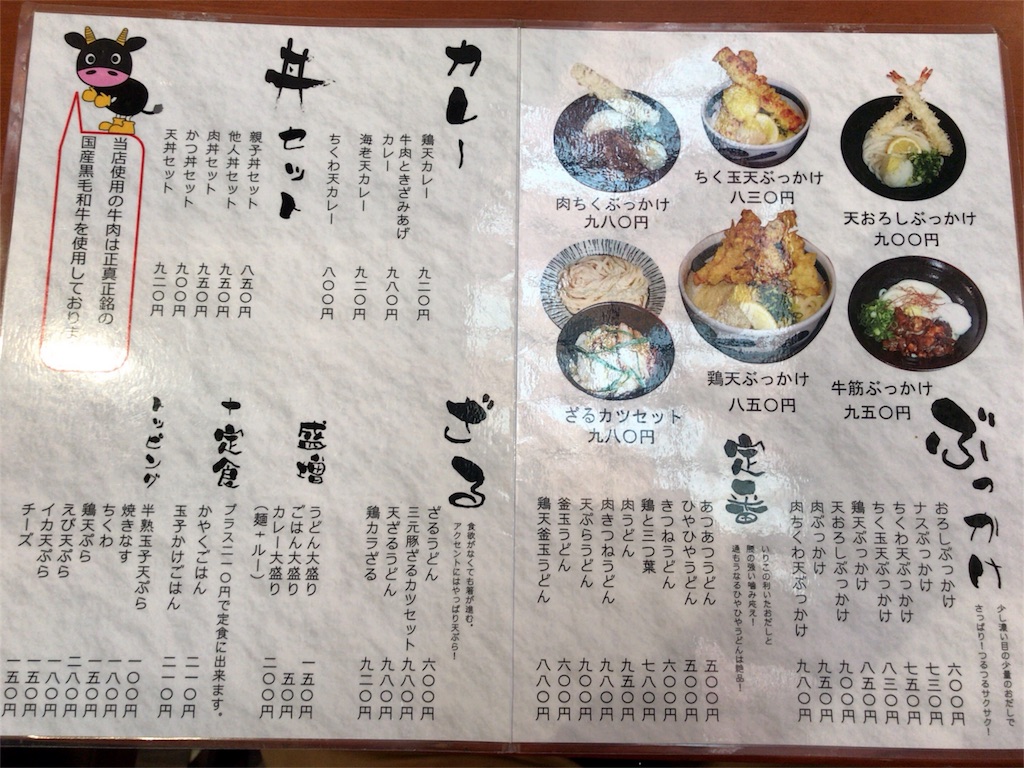 天おろしぶっかけ
九〇〇円
ちく玉天ぶっかけ
八三〇円
肉ちくぶっかけ
九八〇円
牛筋ぶっかけ
九五〇円
鶏天ぶっかけ
八五〇円
ざるカツセット
九八〇円
ぶっかけ
少し濃い目の少量のおだしで
さっぱり！つるつるサクサク！
おろしぶっかけ 六〇〇円
ナスぶっかけ 七三〇円
ちくわ天ぶっかけ 七五〇円
ちく玉天ぶっかけ 八三〇円
鶏天ぶっかけ 八五〇円
天おろしぶっかけ 九〇〇円
肉ぶっかけ 九五〇円
肉ちくわ天ぶっかけ 九八〇円
定番
いりこの利いたおだしと
腰の強い噛み応え！
通もうなるひやひやうどんは絶品！
あつあつうどん 五〇〇円
ひやひやうどん 五〇〇円
きつねうどん 六〇〇円
鶏と三つ葉 七八〇円
肉うどん 九五〇円
肉きつねうどん 九八〇円
天ぷらうどん 九〇〇円
釜玉うどん 六〇〇円
鶏天釜玉うどん 八八〇円
カレー
鶏天カレー 九二〇円
牛肉ときざみあげ
カレー 九八〇円
海老天カレー 九二〇円
ちくわ天カレー 八〇〇円
丼セット
親子丼セット 八五〇円
他人丼セット 九五〇円
肉丼セット 九五〇円
かつ丼セット 九〇〇円
天丼セット 九二〇円
当店使用の牛肉は正真正銘の
国産黒毛和牛を使用しておりま
ざる
食欲がなくても箸が進む。
アクセントにはやっぱり天ぷら！
ざるうどん 六〇〇円
三元豚ざるカツセット 九八〇円
天ざるうどん 九八〇円
鶏カラざる 九二〇円
盛増
うどん大盛り 一五〇円
ごはん大盛り 五〇円
カレー大盛り 二〇〇円
（麺+ルー）
+定食
プラス二一〇円で定食に出来ます。
かやくごはん 二一〇円
玉子かけごはん 二一〇円
トッピング
半熟玉子天ぷら 一〇〇円
焼きなす 一八〇円
ちくわ 一五〇円
鶏天ぷら 二八〇円
えび天ぷら 一八〇円
イカ天ぷら 一五〇円
チーズ 一五〇円